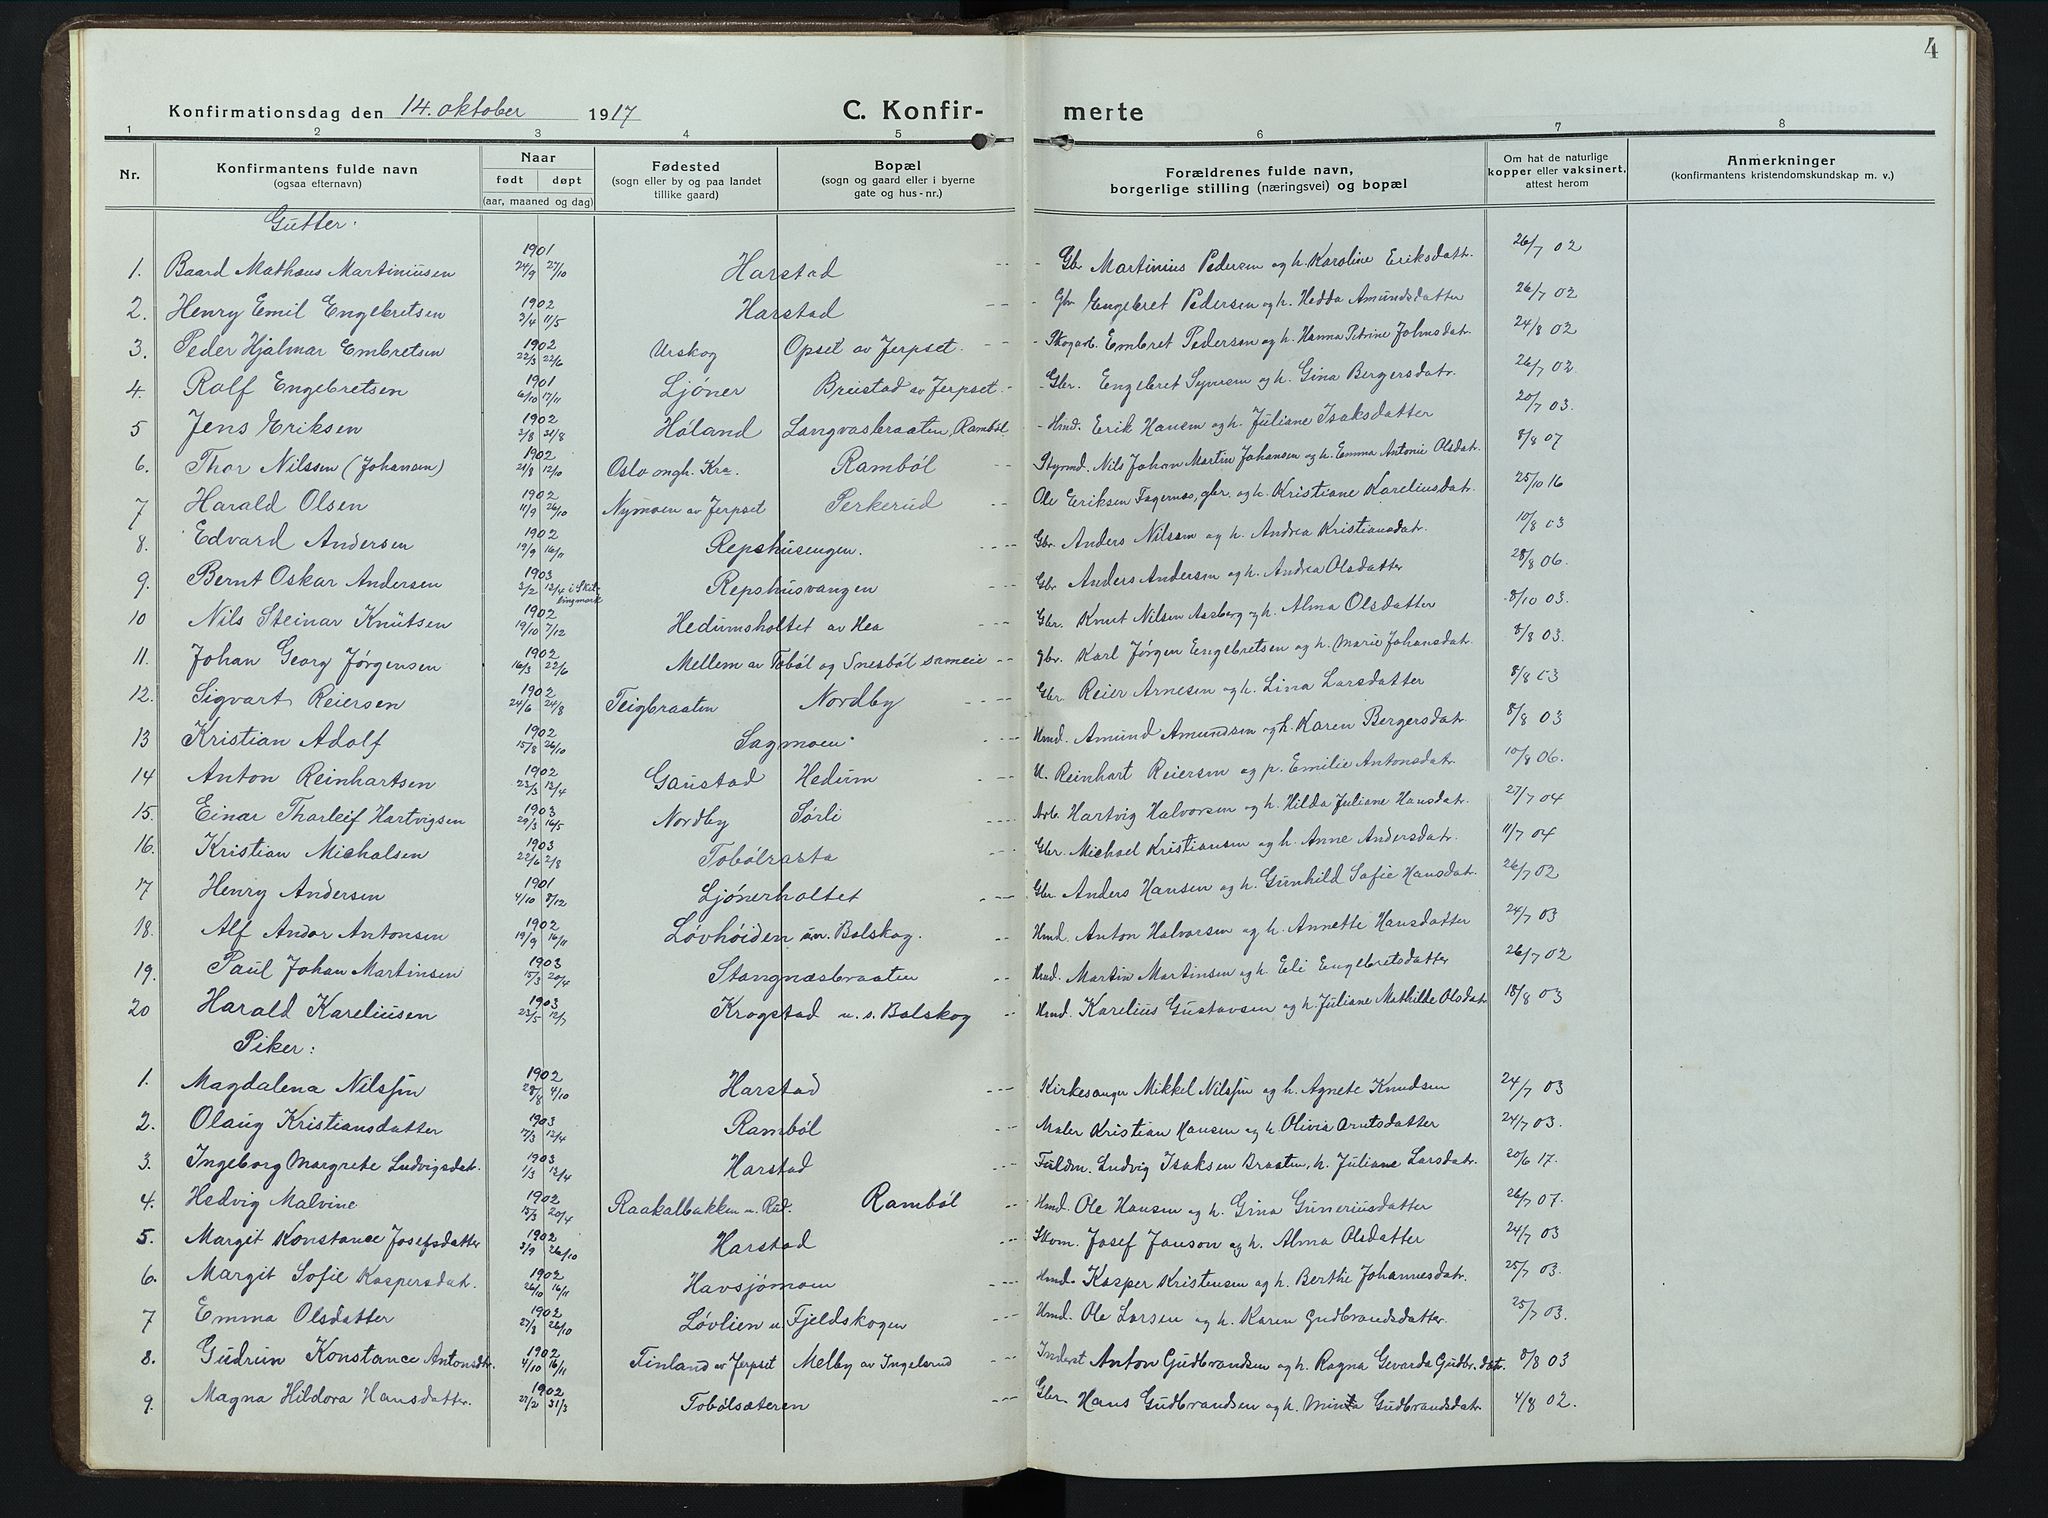 4
Konfirmationsdag den 14. oktober 1917 C. Konfir- merte
1 2 3 4 5 6 7 8
Nr. Konfirmantens fulde navn (ogsaa efternavn) Naar født døpt (aar, maaned og dag) Fødested (sogn eller by og paa landet tillike gaard) Bopæl (sogn og gaard eller i byerne gate og hus-nr.) Forældrenes fulde navn, borgerlige stilling (næringsvei) og bopæl Om hat de naturlige kopper eller vaksinert, attest herom Anmerkninger (konfirmantens kristendomskundskap m. v.)
Gutter:
1. Baard Mathæus Martiniusen 1901 24/9 27/10 Harstad Gbr Martinius Pedersen og h. Karoline Eriksdatr. 26/7 02
2. Henry Emil Engebretsen 1902 3/4 11/5 Harstad Gbr Engebret Pedersen og h. Hedda Amundsdatter 26/7 02
3. Peder Hjalmar Embretsen 1902 22/3 22/6 Urskog Opset av Jerpset. Skogarb. Embret Pedersen og h. Hanna Petrine Johnsdatr. 24/8 02
4. Ralf Engebretsen 1901 6/10 17/11 Ljøner Brustad av Jerpset. Gbr. Engebret Syversen og h. Gina Bergersdatr. 26/7 02
5 Jens Eriksen 1902 3/8 31/8 Høland Langvasbraaten, Rambøl Hmd. Erik Hansen og h. Juliane Isaksdatter 20/7 03.
6. Thor Nilssen (Johansen) 1902 21/8 12/10 Oslo mgh. Kra. Rambøl Styrmd. Nils Johan Martin Johansen og h. Emma Antonie Olsdatr. 8/8 07
7 Harald Olsen 1902 11/9 26/10 Nymoen av Jerpset Perkerud Ole Eriksen Fagernæs, gbr. og h. Kristiane Kareliusdatr. 25/10 16
8. Edvard Andersen 1902 19/9 16/11 Repshusengen. Gbr Anders Nilssen og h. Andrea Kristiansdatr. 10/8 03
9. Bernt Oskar Andersen 1903 3/2 13/4 i Skillingmark Repshusvangen Gbr Anders Andersen og h. Andrea Olsdatter 28/8 06.
10 Nils Steinar Knutsen 1902 19/10 7/12 Hedumsholtet av Hea Gbr. Knut Nilsen Aasberg og h. Alma Olsdatter 8/10 03.
11. Johan Georg Jørgensen 1902 16/3 22/6 Mellem av Tobøl og Snesbøl sameie gbr. Karl Jørgen Engebretsen og h. Marie Johansdatr. 8/8 03.
12. Sigvart Reiersen 1902 24/6 24/8 Teigbraaten Nordby Gbr Reier Arnesen og h. Lina Larsdatter 8/8 03
13 Kristian Adolf 1902 15/8 26/10 Sagmoen Hmd. Amund Amundsen og h. Karen Bergersdatr. 8/8 03
14 Anton Reinhartsen 1902 23/3 13/4 Gaustad Hedum U. Reinhart Reiersen og p. Emilie Antonsdatr. 10/8 06.
15. Einar Tharleif Hartvigsen 1903 29/3 16/5 Nordby Sørli Arb. Hartvig Halvorsen og h. Hilda Juliane Hansdatr. 27/7 04
16. Kristian Michalsen 1903 22/6 2/8 Tobølrasta Gbr. Michael Kristiansen og h. Anne Andersdatr. 11/7 04
17 Henry Andersen 1901 4/10 8/12 Ljønerholtet Gbr Anders Hansen og h. Gunhild Sofie Hansdatr. 26/7 02
18. Alf Andor Antonsen 1902 19/9 16/11 Løvhøiden un. Bolskog. Hmd. Anton Halvorsen og h. Annette Hansdatter 24/7 03
19. Paul Johan Martinsen 1903 15/3 20/4 Stangnæsbraaten Hmd. Martin Martinsen og h. Eli Engebretsdatter 26/7 02
20 Harald Kareliusen 1903 23/5 12/7 Krogstad u. s. Bolskog Hmd. Karelius Gustavsen og h. Juliane Mathilde Olsdatr 18/8 03
Piker:
1. Magdalena Nilssen 1902 28/8 4/10 Harstad Kirkesanger Mikkel Nilssen og h. Agnete Knudsen 24/7 03
2. Olaug Kristiansdatter 1903 17/3 12/4 Rambøl Maler Kristian Hansen og h. Olivia Arntsdatter 24/7 03.
3. Ingeborg Margrete Ludvigsdatr. 1903 1/3 13/4 Harstad Fuldm. Ludvig Isaksen Braaten, h. Juliane Larsdatr. 20/6 17.
4. Hedvig Malvine 1902 15/3 20/4 Raakalbakken u. Rud. Rambøl Hmd. Ole Hansen og h. Gina Guneriusdatter 26/7 07.
5. Margit Konstance Josefsdatter 1902 3/9 26/10 Harstad Skom. Josef Janson og h. Alma Olsdatter 24/7 03
6. Margit Sofie Kaspersdatr. 1902 26/10 16/11 Havsjømoen Hmd. Kasper Kristensen og h. Berthe Johannesdatr. 25/7 03.
7 Emma Olsdatter 1902 27/8 26/10 Løvlien u Fjeldskogen Hmd. Ole Larsen og h. Karen Gudbrandsdatter. 25/7 03.
8. Gudrun Konstance Antonsdtr. 1902 4/10 16/11 Finland av Jerpset Melby av Ingelsrud Inderst Anton Gudbrandsen og h. Ragna Gevarda Gudbr.datr. 8/8 03
9. Magna Hildora Hansdatter. 1902 27/2 31/3 Tobølsæteren Gbr Hans Gudbrandsen og h. Mina Gudbrandsdatr 4/8 02.